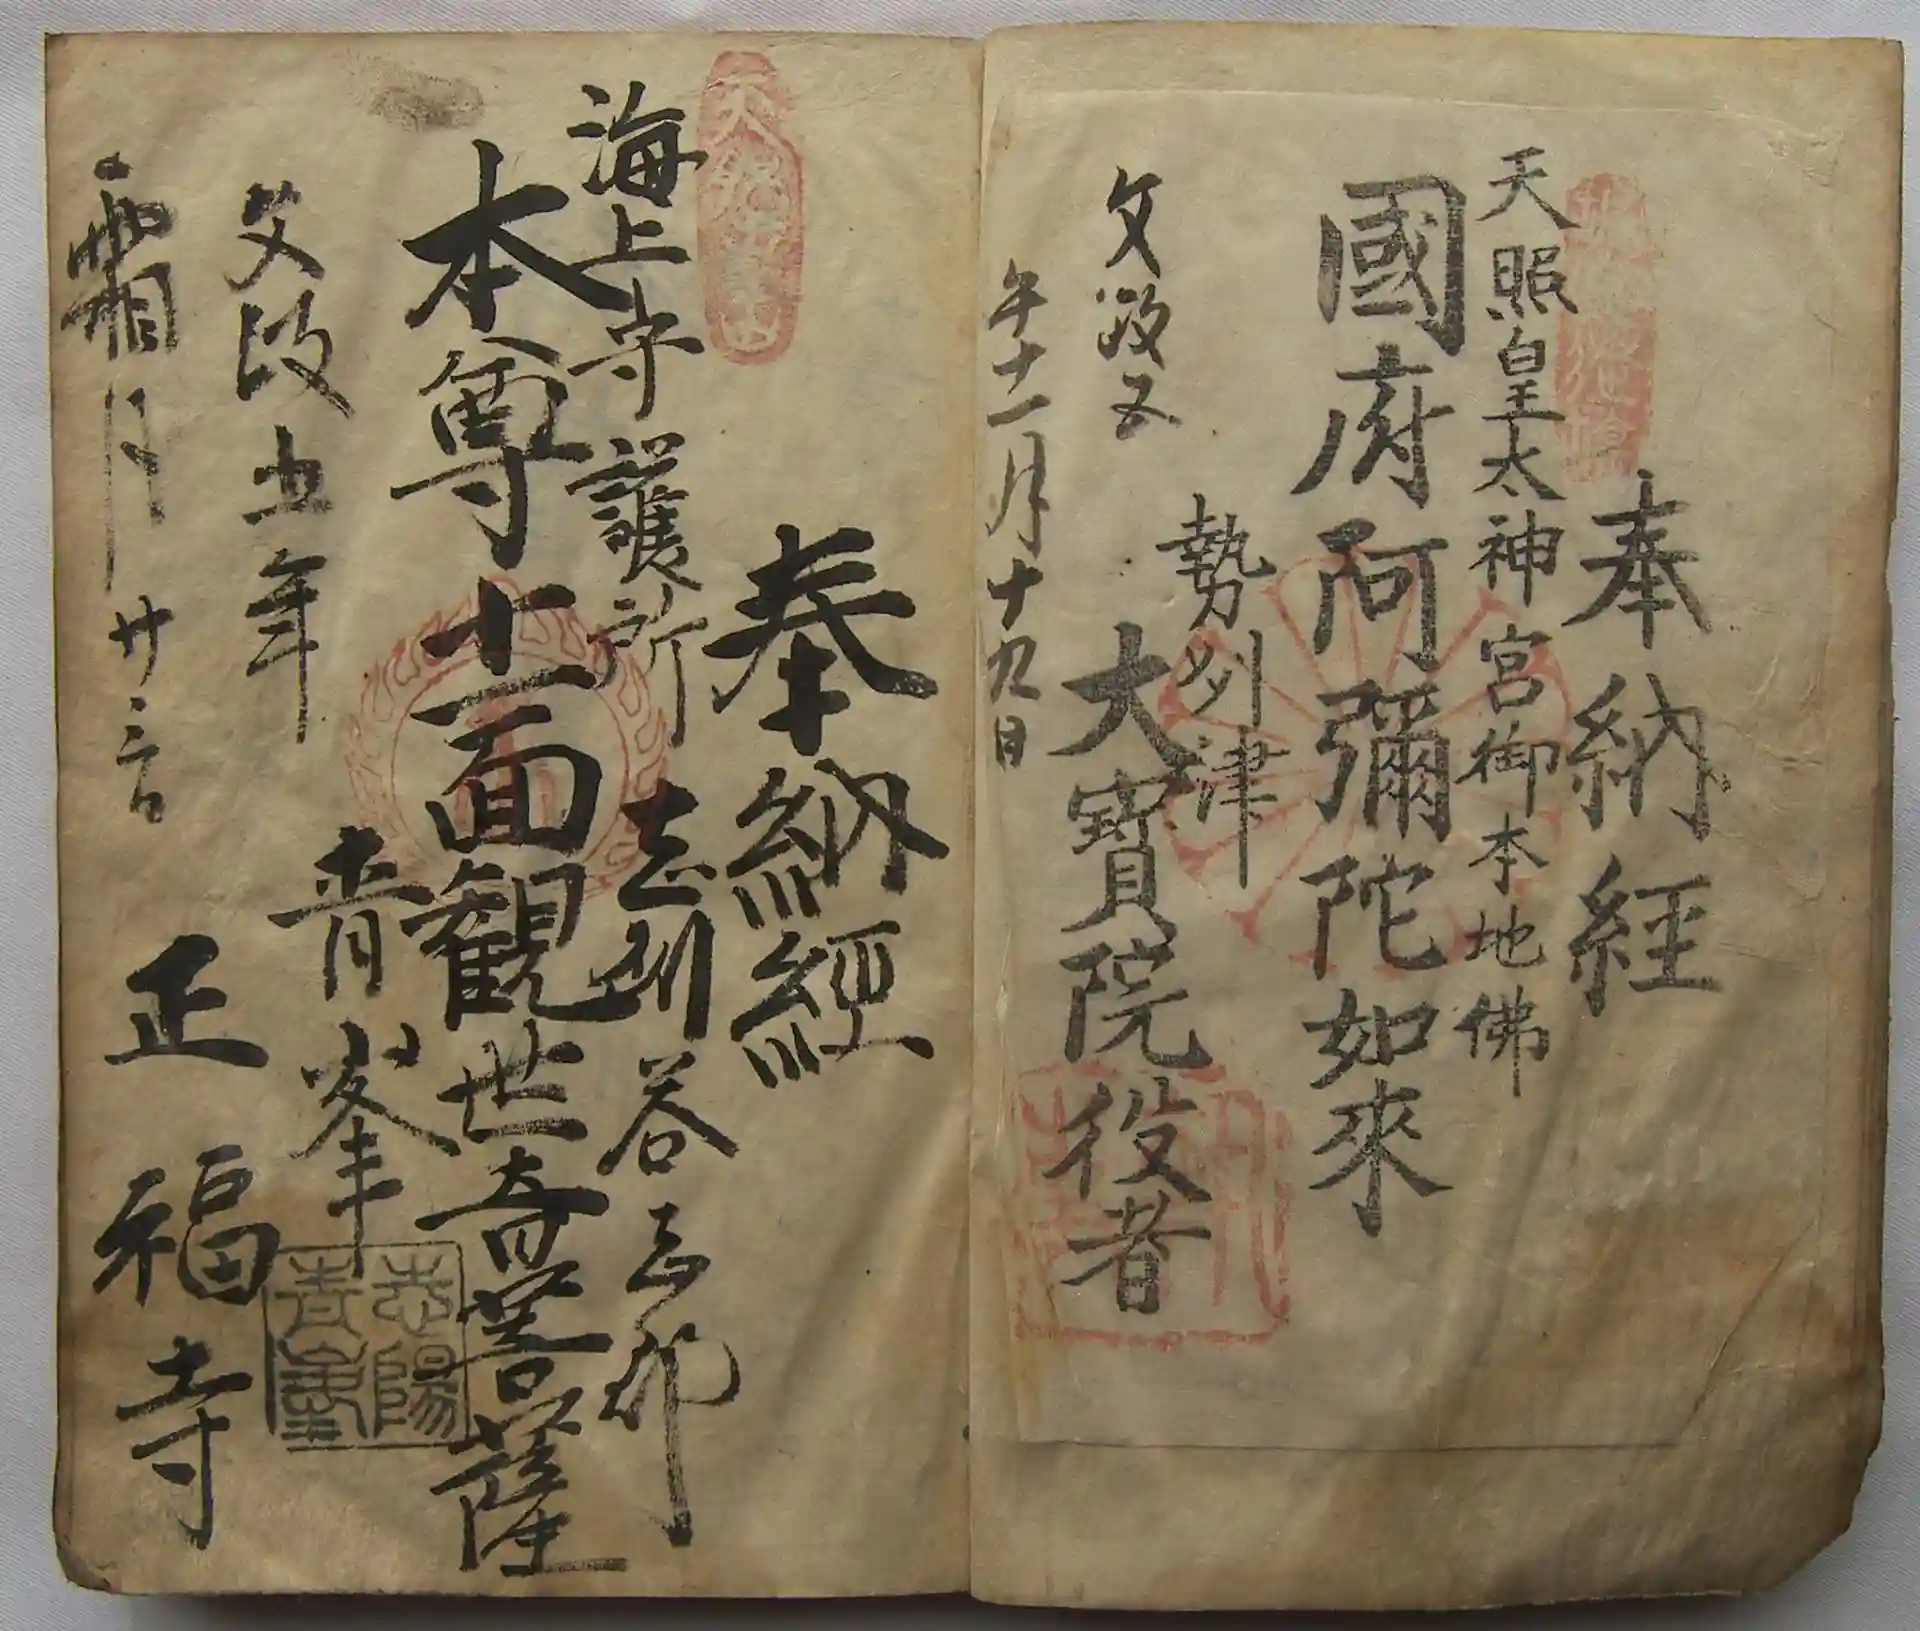 奉納経
天照皇太神宮御本地佛
國府阿彌陀如来
勢州津
大寳院役者
文政五
午十一月十九日
奉納經
海上守護所
志刕答志郡
本尊十一面観世音菩薩
青峯
正福寺
文政五年
霜月廿三日
志陽
青峯